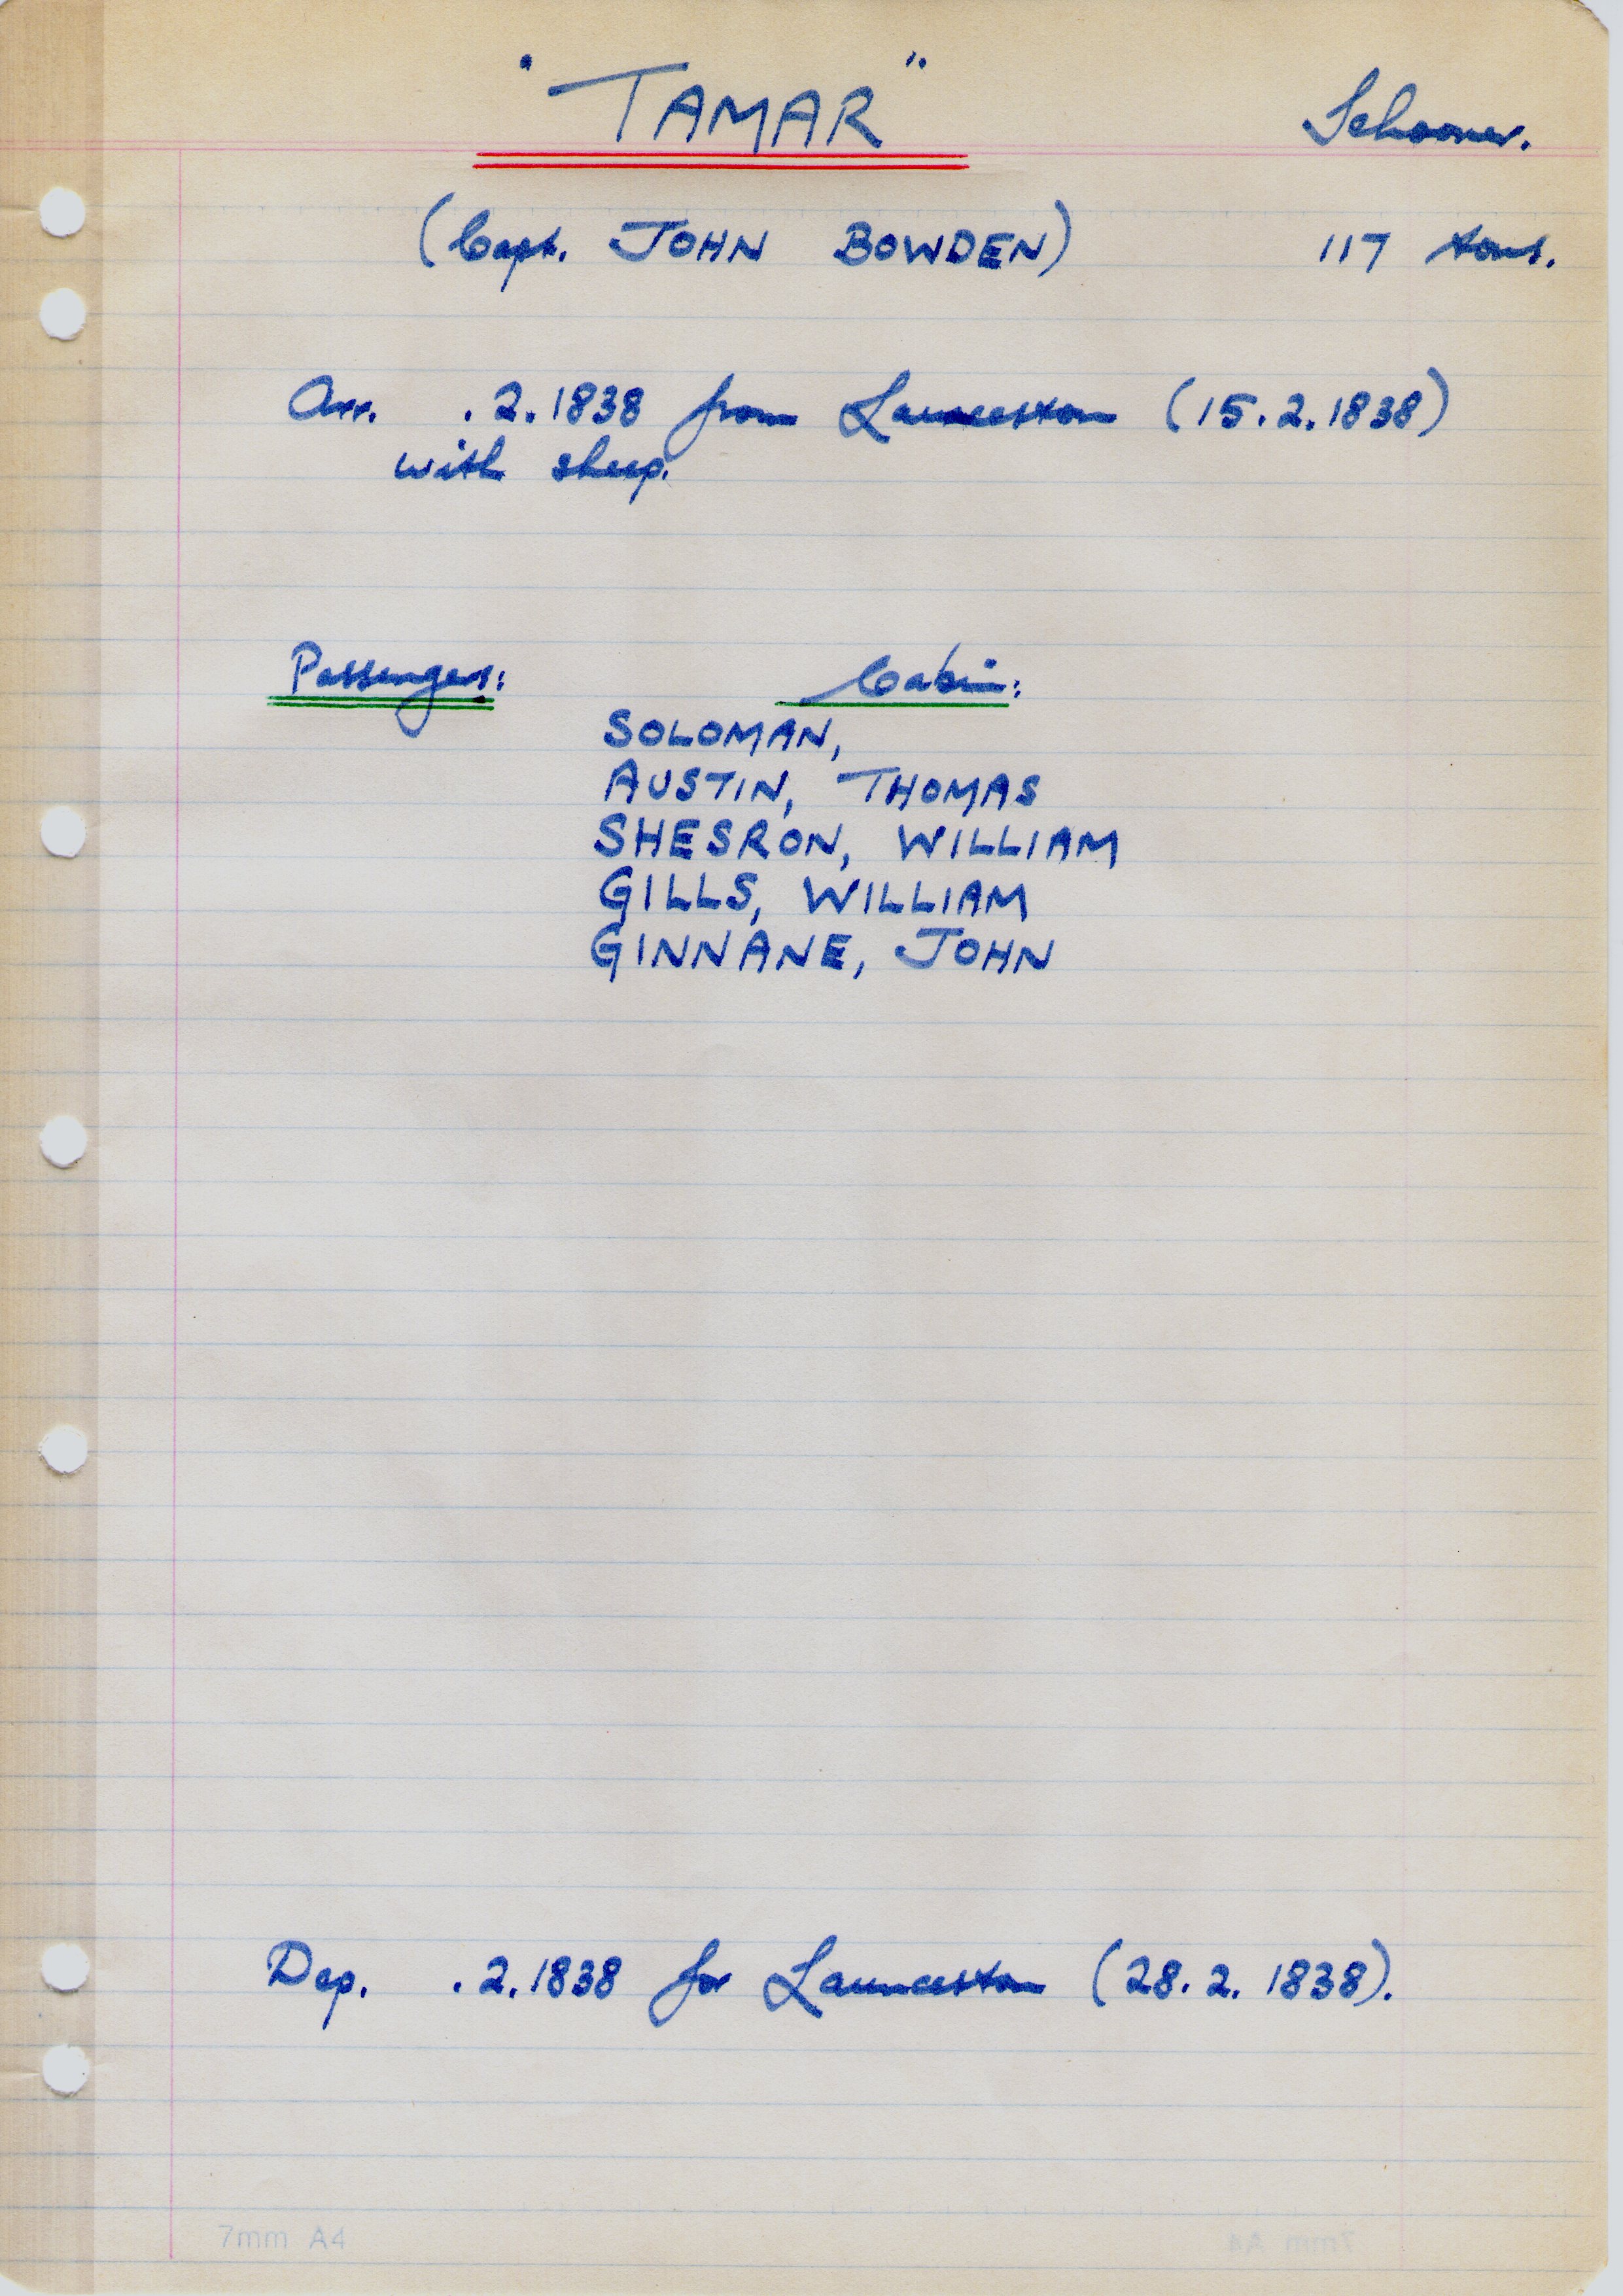 "TAMAR"
Schooner.
(Capt. JOHN BOWDEN)
117 tons.
Arr. .2.1838 from Launceston (15.2.1838)
with sheep.
Passengers:
Cabin:
SOLOMAN,
AUSTIN, THOMAS
SHESRON, WILLIAM
GILLS, WILLIAM
GINNANE, JOHN
Dep. .2.1838 for Launceston (28.2.1838).
7mm A4